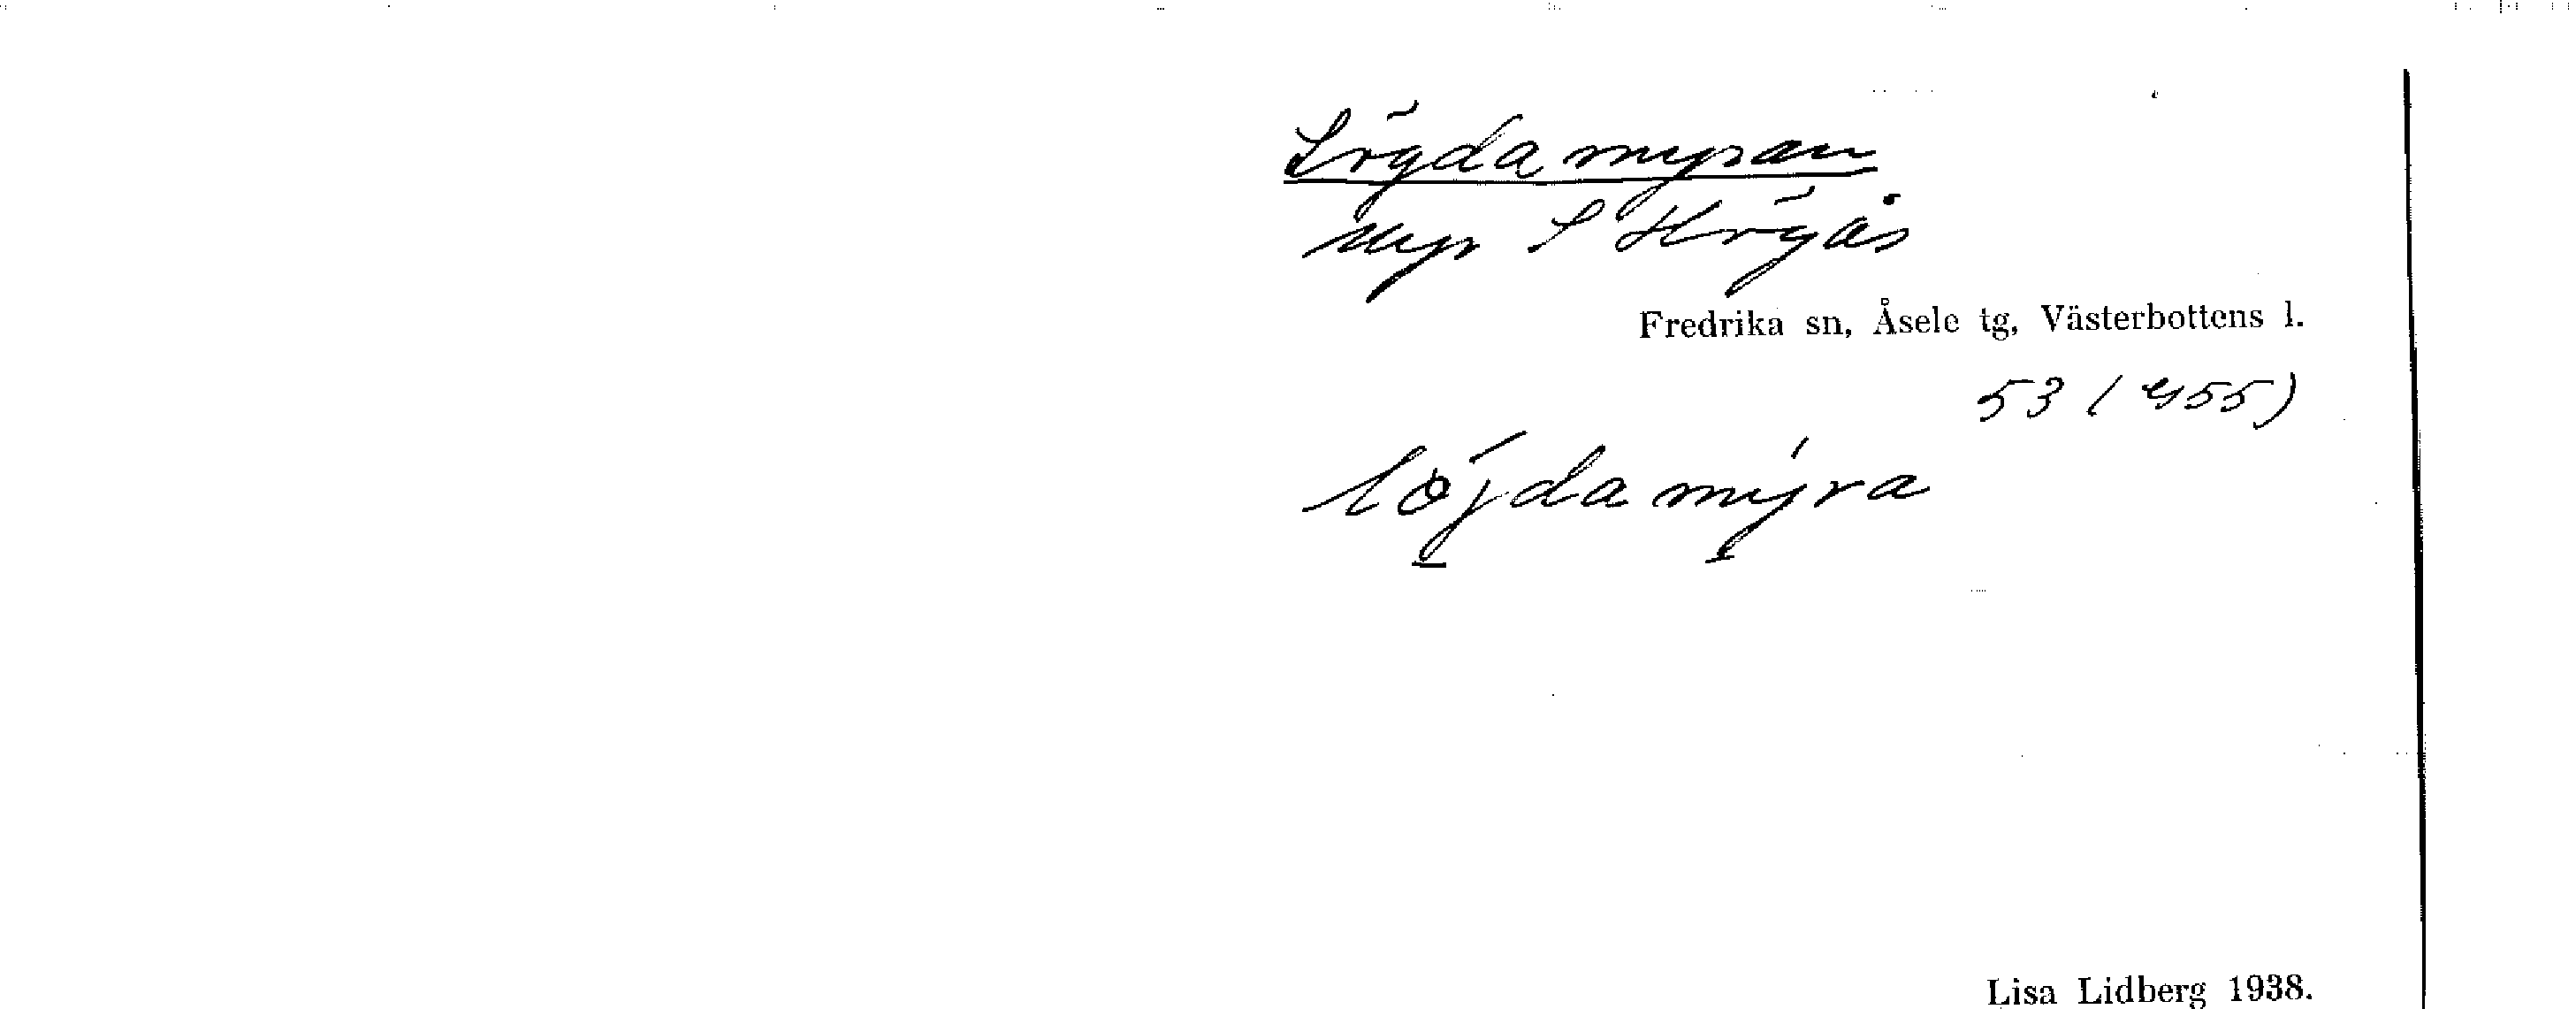 Lögdamyran
myr S Högås
Fredrika sn, Åsele tg, Västerbottens l.
53 (455)
löjdamyra
Lisa Lidberg 1938.